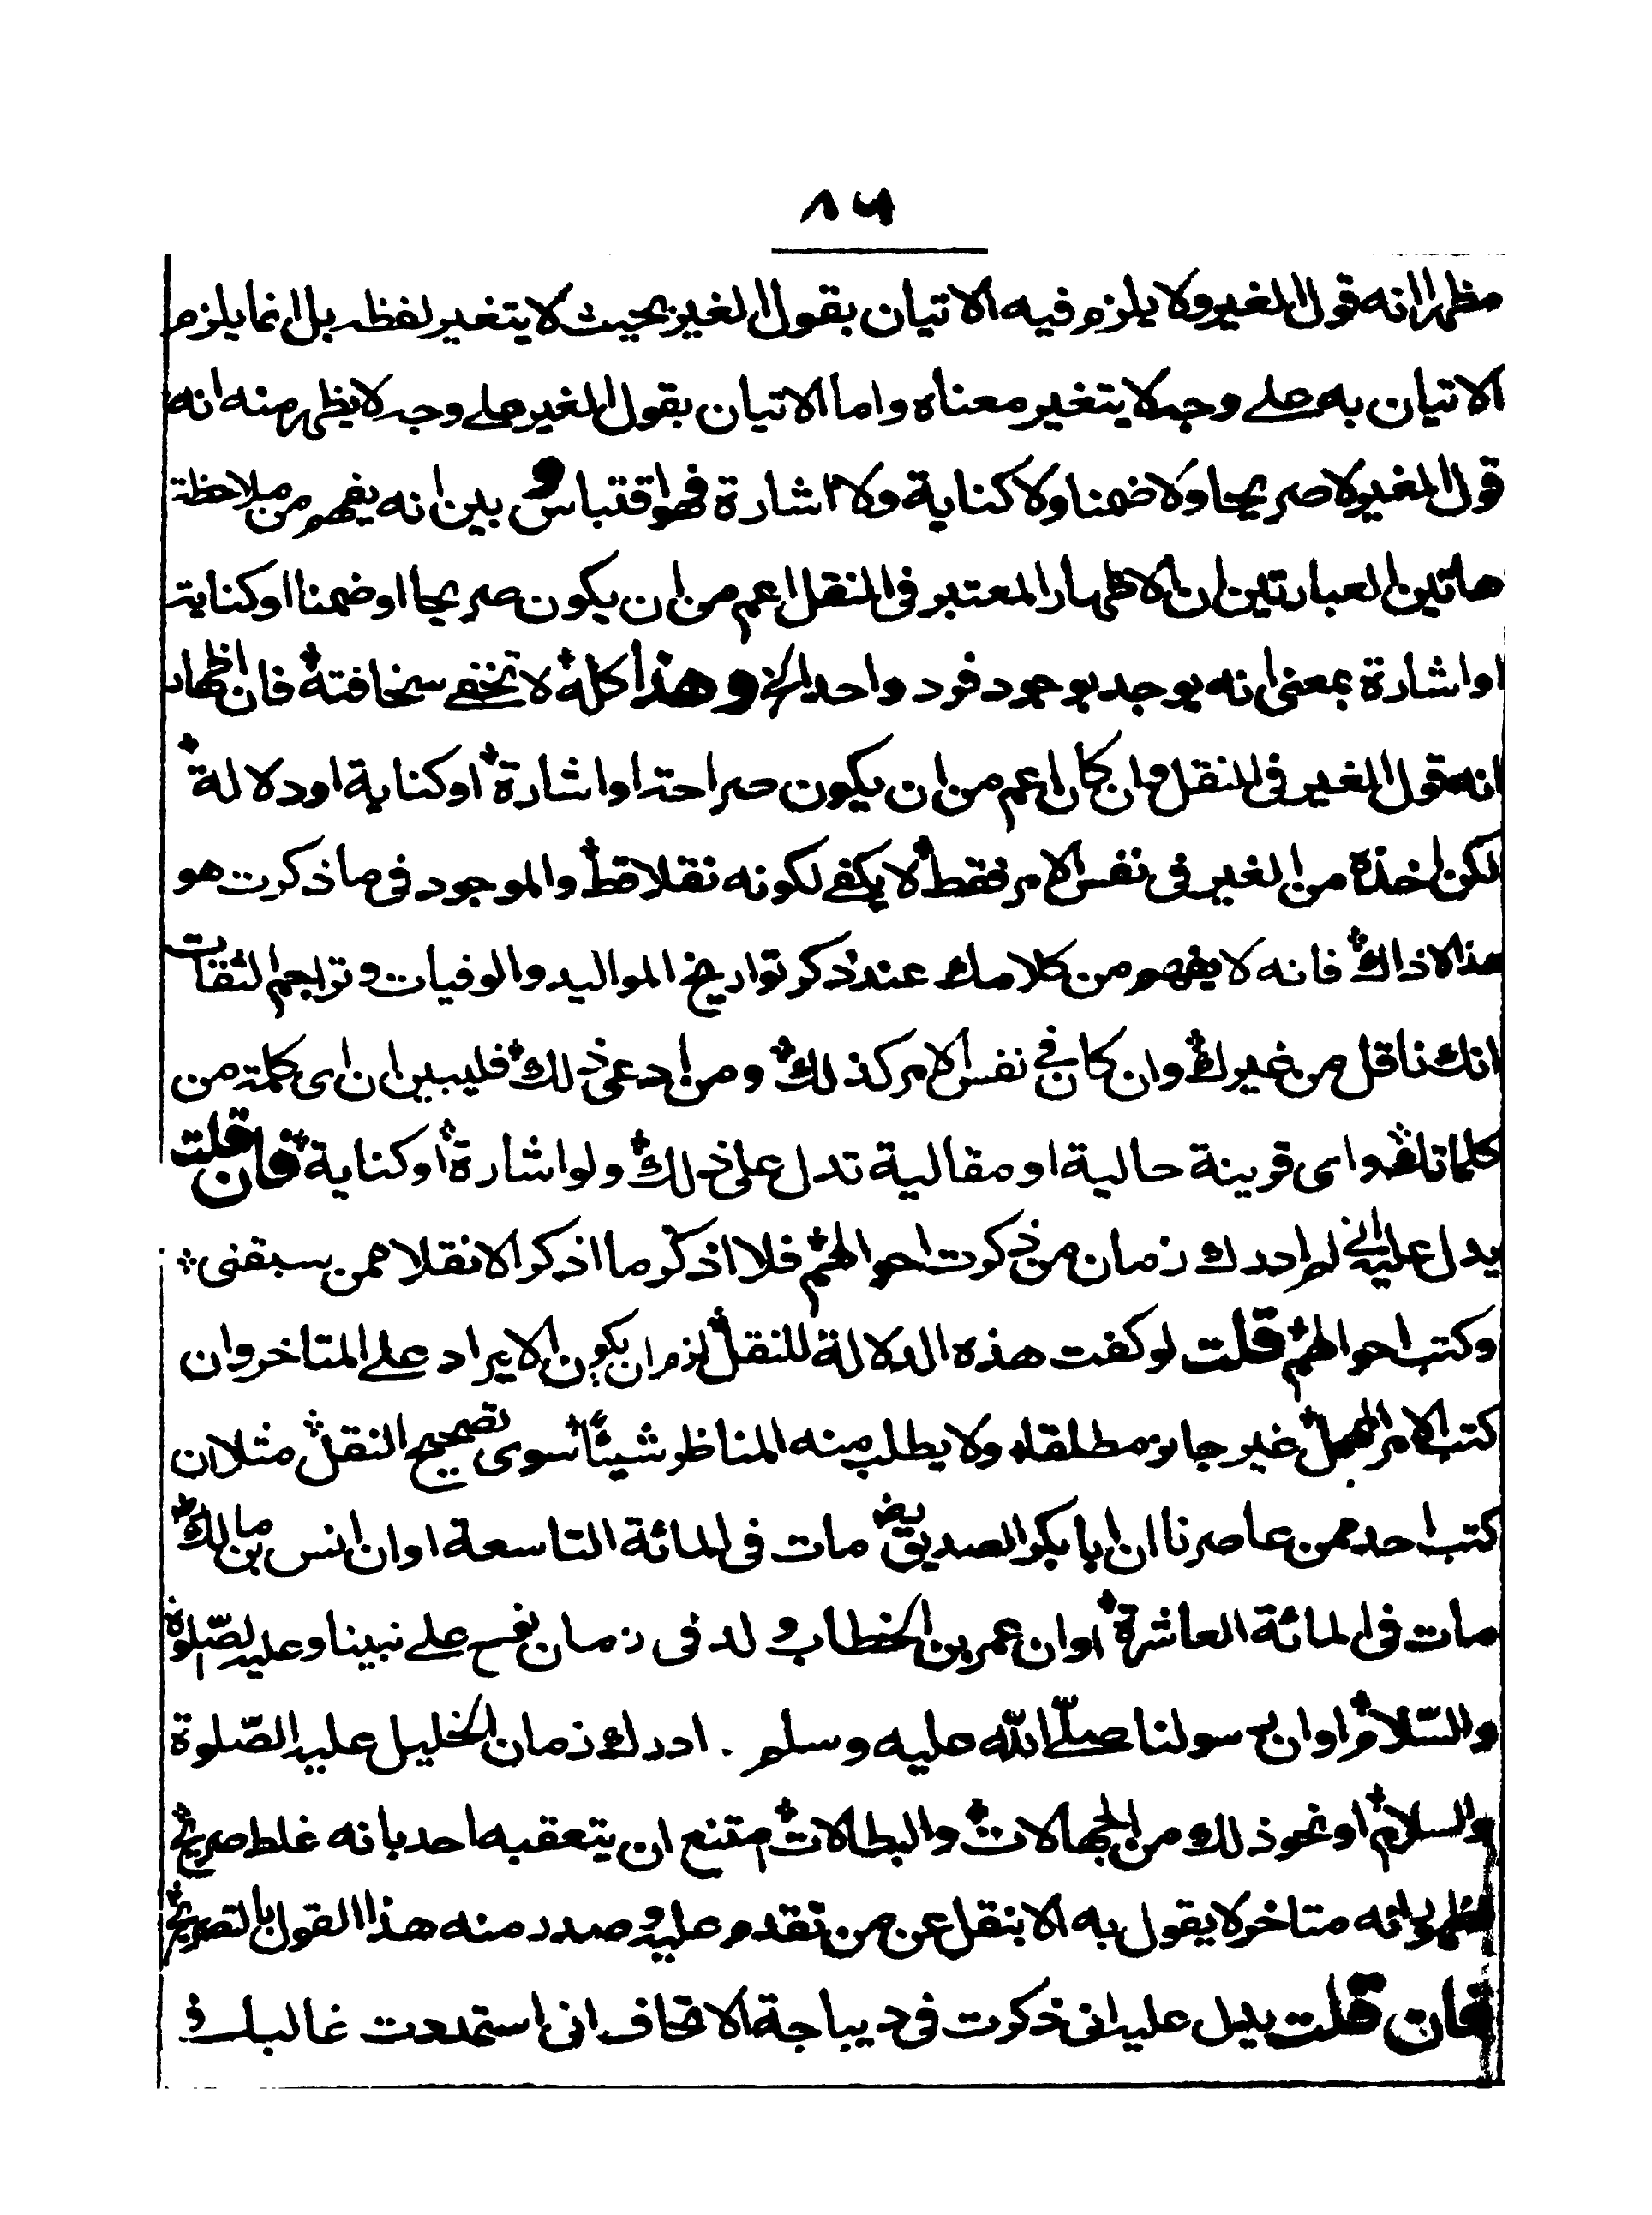 ٨٦
مظهرا انه قول الغير ولا يلزم فيه الاتيان بقول الغير بحيث لا يتغير لفظه بل انما يلزم
الاتيان به على وجه لا يتغير معناه واما الاتيان بقول الغير على وجه لا يظهر منه انه
قول الغير لا صريحا ولا ضمنا ولا كناية ولا اشارة فهو اقتباس و بين انه يفهم من ملاحظة
هاتين العبارتين ان الاظهار المعتبر فى النقل اعم من ان يكون صريحا او ضمنا او كناية
او اشارة بمعنى انه يوجد بوجود فرد واحد الخ وهذا كله لا تخفى سخافته فان اظهار
انه قول الغير فى النقل وان كان اعم من ان يكون صراحة او اشارة او كناية او دلالة
لكن اخذه من الغير فى نفس الامر فقط لا يكفى لكونه نقلا قط والموجود فى ما ذكرت هو
هذا لا ذاك فانه لا يفهم من كلامك عند ذكر تواريخ المواليد والوفيات وتراجم الثقات
انك ناقل من غيرك وان كان فى نفس الامر كذلك ومن ادعى ذلك فليبين ان اى كلمة من
كلماتك واى قرينة حالية او مقالية تدل على ذلك ولو اشارة او كناية فان قلت
يدل عليه انى لم ادرك زمان من ذكرت احوالهم فلا اذكر ما اذكر الا نقلا ممن سبقنى
وكتب احوالهم قلت لو كفت هذه الدلالة للنقل لزم ان يكون الايراد على المتاخر وان
كتب الامر المهمل غير جائز مطلقا ولا يطلب منه المناظر شيئا سوى تصحيح النقل مثلا ان
كتب احد ممن عاصرنا ان ابا بكر الصديق رض مات فى المائة التاسعة او ان انس بن مالك
مات فى المائة العاشرة او ان عمر بن الخطاب ولد فى زمان نوح على نبينا وعليه الصلوة
والسلام او ان رسولنا صلى الله عليه وسلم ادرك زمان الخليل عليه الصلوة
والسلام او نحو ذلك من الجهالات والبطالات امتنع ان يتعقبه احد بانه غلط صريح
لظهور انه متاخر لا يقول به الا بنقل عن من تقدم عليه وصدر منه هذا القول بالتصريح
فان قلت يدل عليه انى ذكرت فى ديباجة الاتحاف انى استمددت غالبا